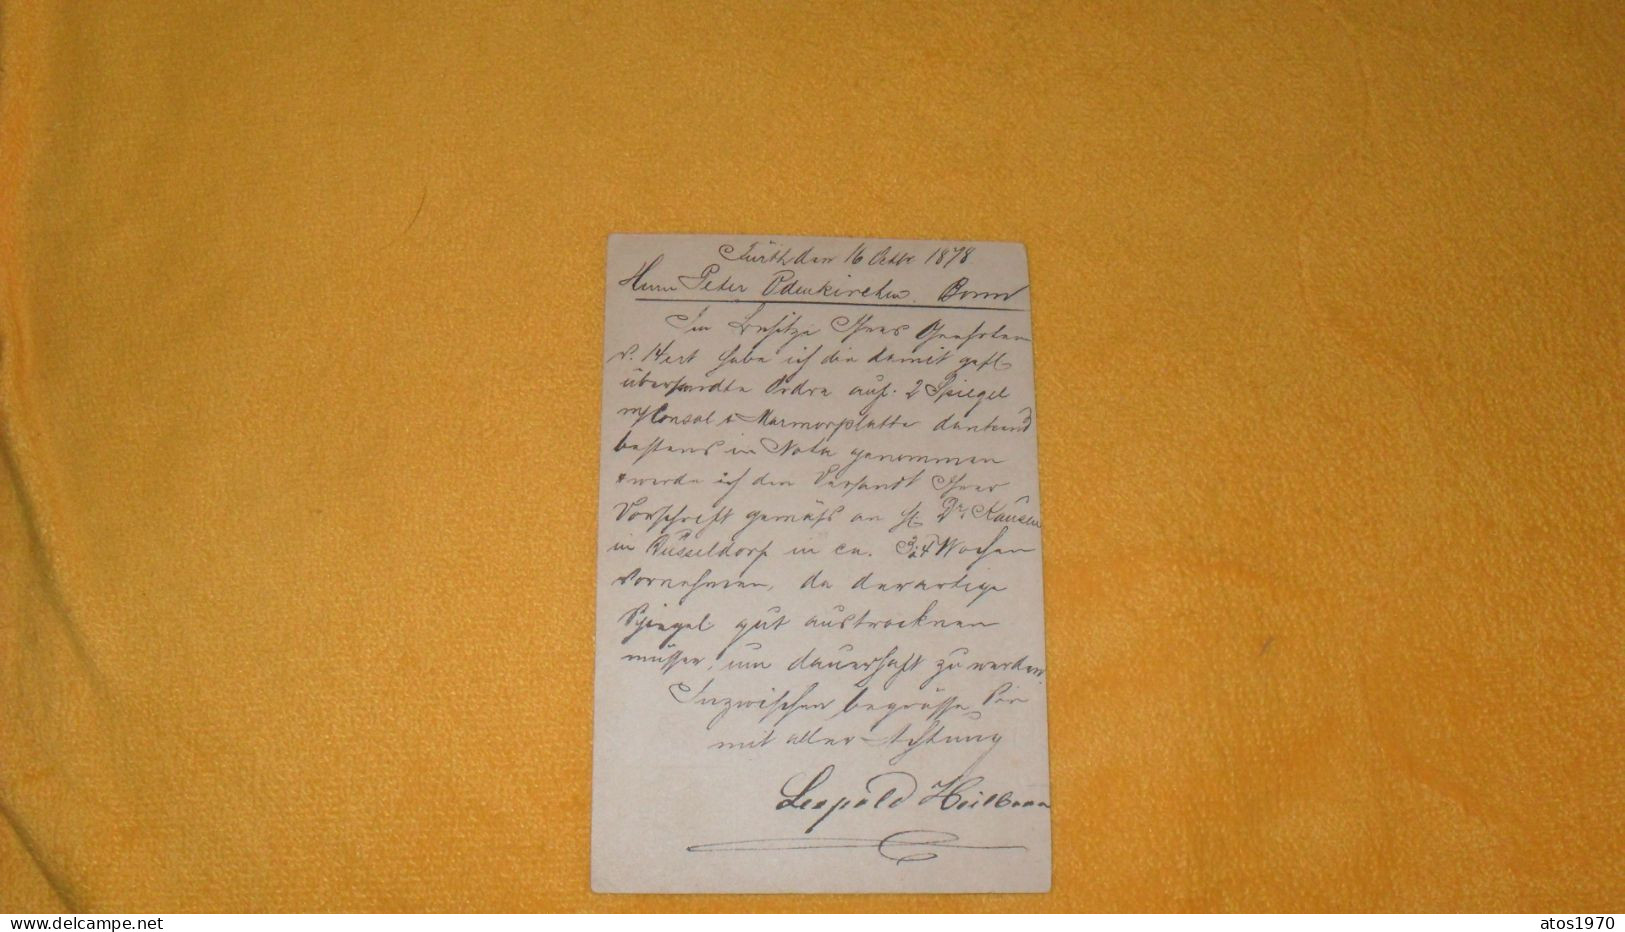 Fürth den 16 Octbr 1878
Herrn Peter Odenkirchen. Bonn
Im Besitze Ihres Geehrten
v. 14 ert habe ich die damit gefl
übersandte Ordre auf. 2 Spiegel
m/Consol & Marmorplatte dankend
bestens in Nota genommen
& werde ich den Versandt Ihrer
Vorschrift gemäß an H. Dr. Kausen
in Düsseldorf in ca. 3-4 Wochen
vornehmen, da derartige
Spiegel gut austrocknen
müssen, um dauerhaft zu werden.
Inzwischen begrüsse Sie
mit aller Achtung
Leopold Heilbronn
www.delcampe.net
atos1970